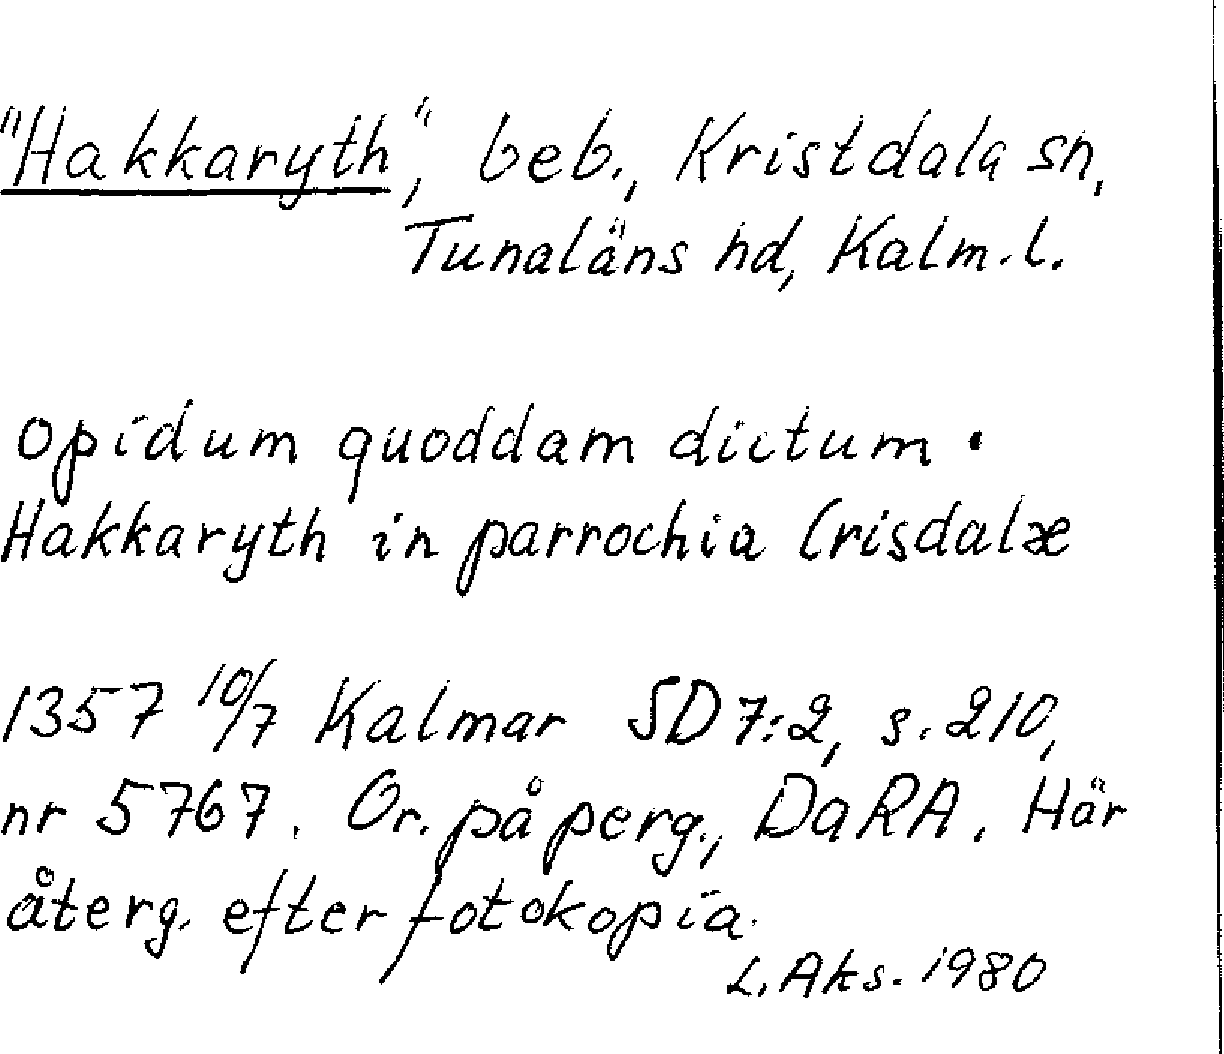 "Hakkaryth", beb., Kristdala sn,
Tunaläns hd, Kalm. l.
opidum quoddam dictum •
Hakkaryth in parrochia Crisdalæ
1357 10/7 Kalmar SD 7:2, s. 210,
nr 5767. Or. på perg., DaRA. Här
återg. efter fotokopia.
L. Aks. 1980